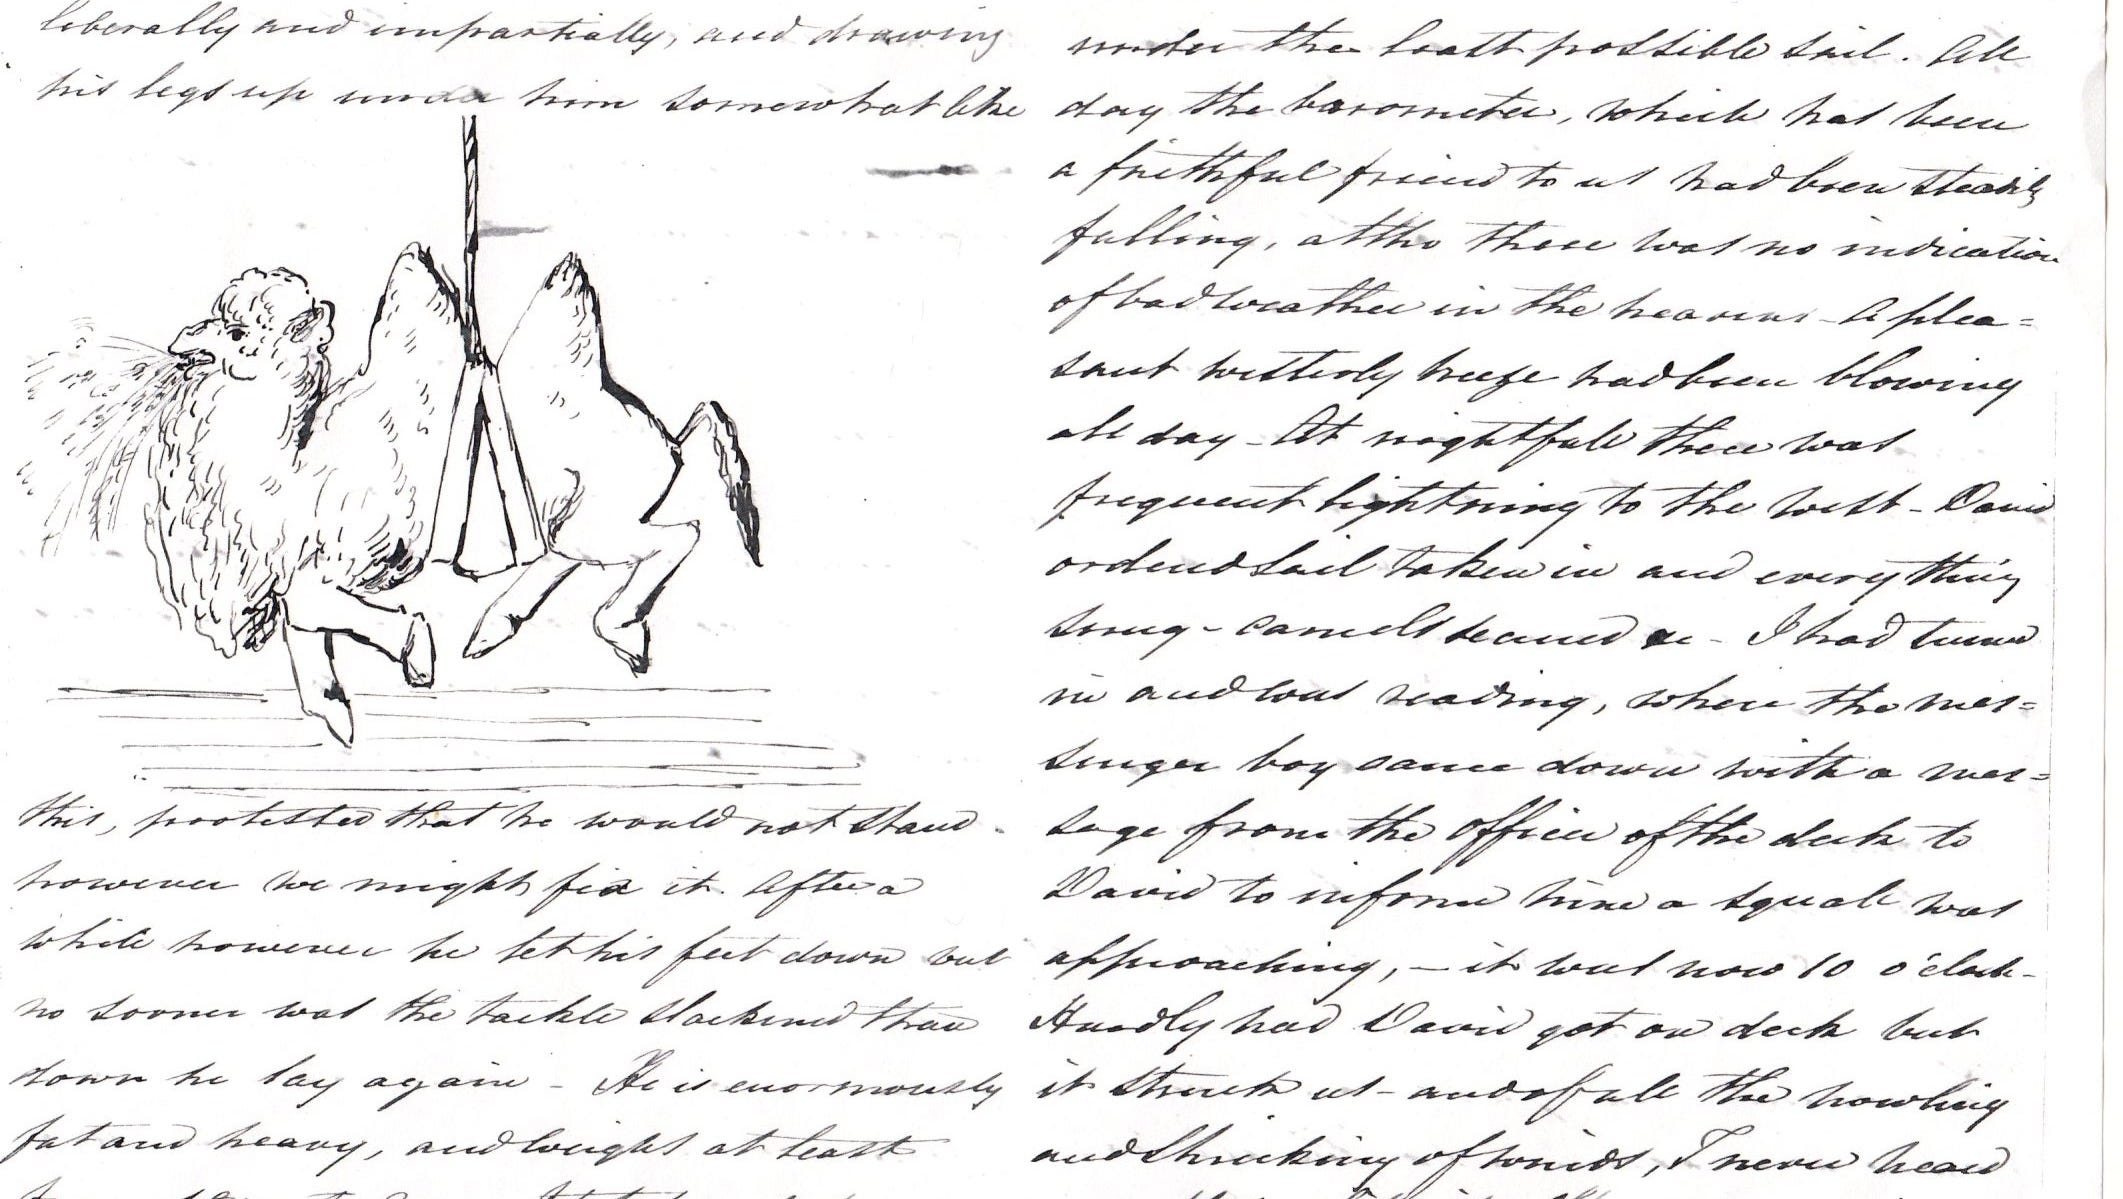 liberally and impartially, and drawing
his legs up under him somewhat like
this, protested that he would not stand
however we might fix it. After a
while however he let his feet down but
no sooner was the tackle slackened than
down he lay again - He is enormously
fat and heavy, and weighs at least
under the least possible sail. All
day the barometer, which has been
a faithful friend to us had been steadily
falling, altho there was no indication
of bad weather in the heavens - A plea=
sant westerly breeze had been blowing
all day - At nightfall there was
frequent lightning to the west - David
ordered sail taken in and every thing
snug - camels secured &c - I had turned
in and was reading, when the mes=
senger boy came down with a mes=
sage from the officer of the deck to
David to inform him a squall was
approaching, - it was now 10 o'clock -
Hardly had David got on deck but
it struck us - and of all the howling
and shrieking of winds, I never heard